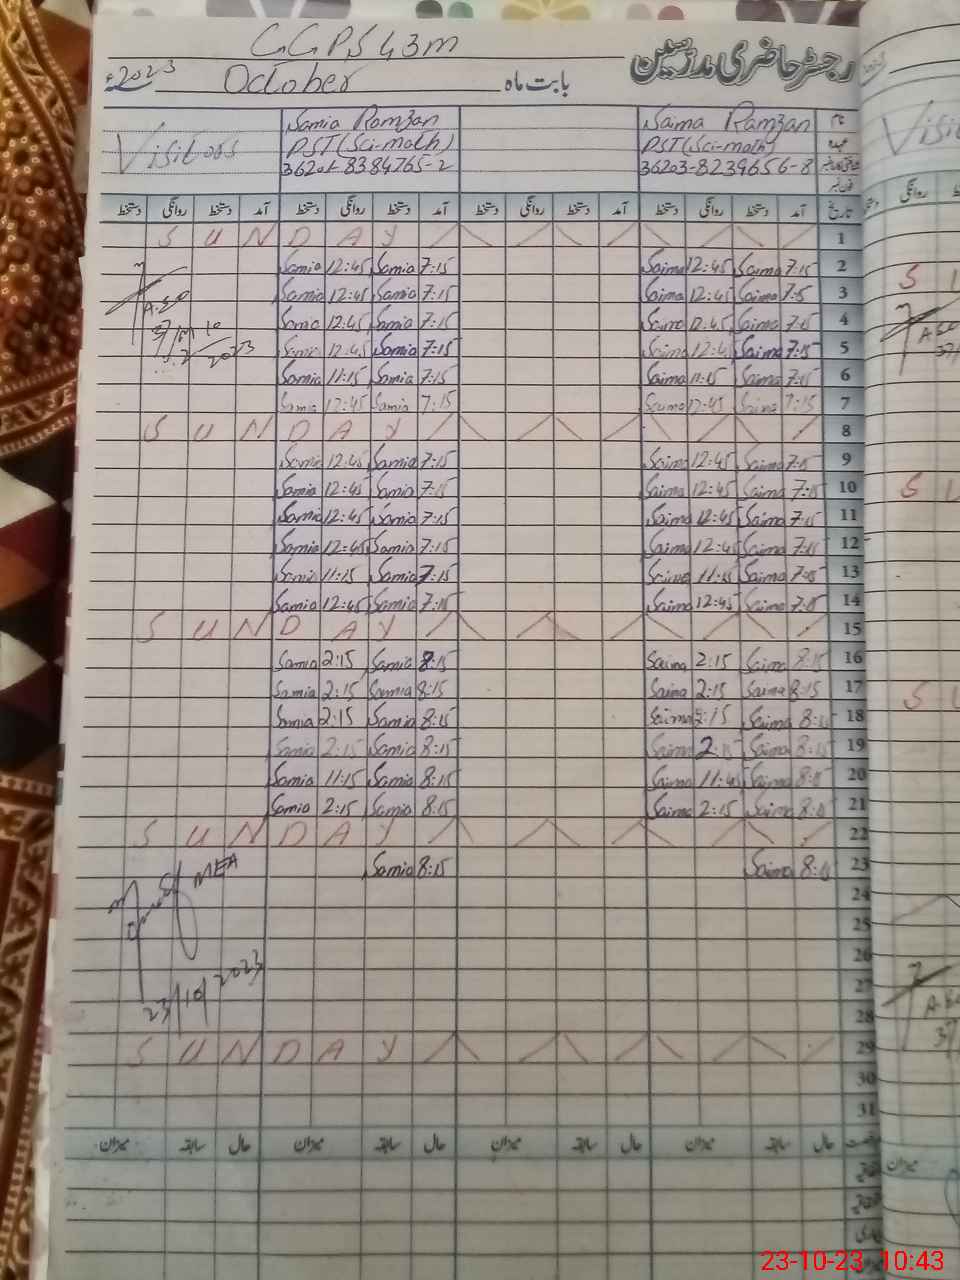 GGPS 43m
رجسٹر حاضری مدرسین
2023ء October بابت ماہ
Visitors Samia Ramzan Saima Ramzan نام
PST (Sci-math) PST (Sci-math) عہدہ
8384765-2 36203-8239656-8
دستخط روانگی دستخط آمد دستخط روانگی دستخط آمد دستخط روانگی دستخط آمد دستخط روانگی دستخط آمد تاریخ
SUNDAY 1
Samia 12:45 Samia 7:15 Saima 12:45 Saima 7:15 2
Samia 12:45 Samia 7:15 Saima 12:45 Saima 7:15 3
Samia 12:45 Samia 7:15 Saima 12:45 Saima 7:15 4
Samia 12:45 Samia 7:15 Saima 12:45 Saima 7:15 5
Samia 11:15 Samia 7:15 Saima 11:15 Saima 7:15 6
Samia 12:45 Samia 7:15 Saima 12:45 Saima 7:15 7
SUNDAY 8
Samia 12:45 Samia 7:15 Saima 12:45 Saima 7:15 9
Samia 12:45 Samia 7:15 Saima 12:45 Saima 7:15 10
Samia 12:45 Samia 7:15 Saima 12:45 Saima 7:15 11
Samia 12:45 Samia 7:15 Saima 12:45 Saima 7:15 12
Samia 11:15 Samia 7:15 Saima 11:15 Saima 7:15 13
Samia 12:45 Samia 7:15 Saima 12:45 Saima 7:15 14
SUNDAY 15
Samia 2:15 Samia 8:15 Saima 2:15 Saima 8:15 16
Samia 2:15 Samia 8:15 Saima 2:15 Saima 8:15 17
Samia 2:15 Samia 8:15 Saima 2:15 Saima 8:15 18
Samia 2:15 Samia 8:15 Saima 2:15 Saima 8:15 19
Samia 11:15 Samia 8:15 Saima 11:45 Saima 8:15 20
Samia 2:15 Samia 8:15 Saima 2:15 Saima 8:15 21
SUNDAY 22
MEA Samia 8:15 Saima 8:15 23
24
25
26
23/10/2023 27
28
SUNDAY 29
30
31
میزان سابقہ حال میزان سابقہ حال میزان سابقہ حال میزان سابقہ حال
23-10-23 10:43